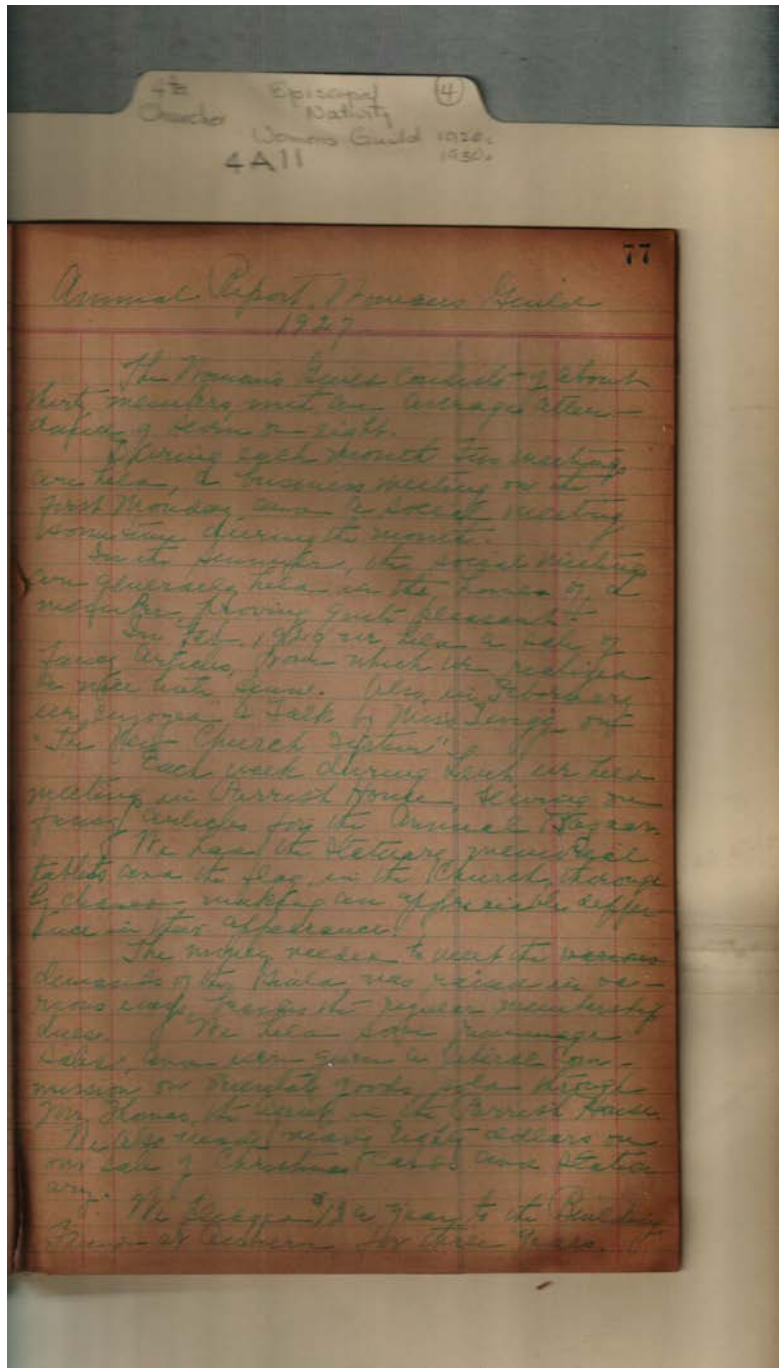 4th Episcopal ④
Churches Nativity
Womens Guild 1920s
4A11 1930s
77
Annual Report, Womans Guild
1927
The Woman's Guild consists of about
thirty members, with an average atten-
dance of seven or eight.
During each month two meetings
are held, a business meeting on the
first Monday and a social meeting
sometime during the month.
In the summer, the social meetings
are generally held in the homes of a
member, proving quite pleasant.
In Feb. we held a sale of
fancy articles, from which we realized
a nice little sum. Also, in February
we enjoyed a talk by Miss on
"The Church System".
Each week during Lent we held
meetings in Parrish House, sewing on
fancy articles for the Annual Bazaar.
We had the Statuary, memorial
tablets and the flag, in the Church, thorough
ly cleaned making an appreciable differ-
ence in their appearance.
The money needed to meet the various
demands of the Guild, was raised in va-
rious ways, besides the regular membership
dues. We held some rummage
sales, and were given a liberal Com-
mission on oriental goods, sold through
Mr. the week in the Parrish House.
We also made nearly Eighty dollars on
our sale of Christmas Cards and Station
ary.
We pledged $ a year to the Building
Fund at for three years.